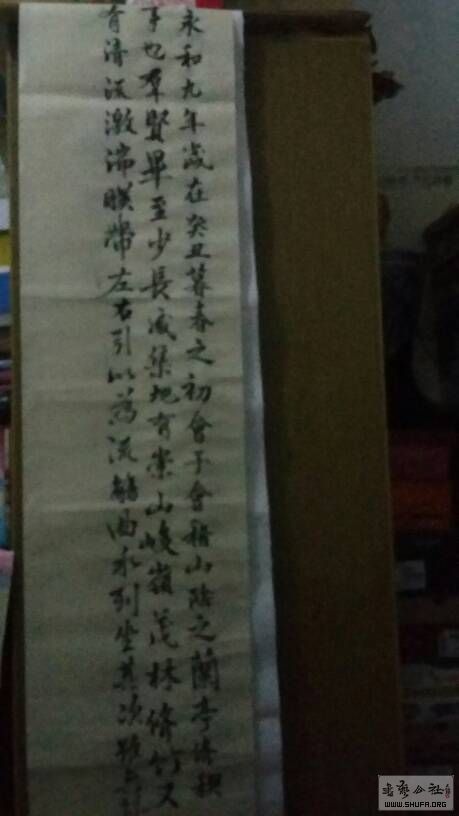 永和九年歲在癸丑暮春之初會于會稽山陰之蘭亭脩稧
事也群賢畢至少長咸集地有崇山峻嶺茂林脩竹又
有清流激湍暎帶左右引以為流觴曲水列坐其次雖
WWW.SHUFA.ORG